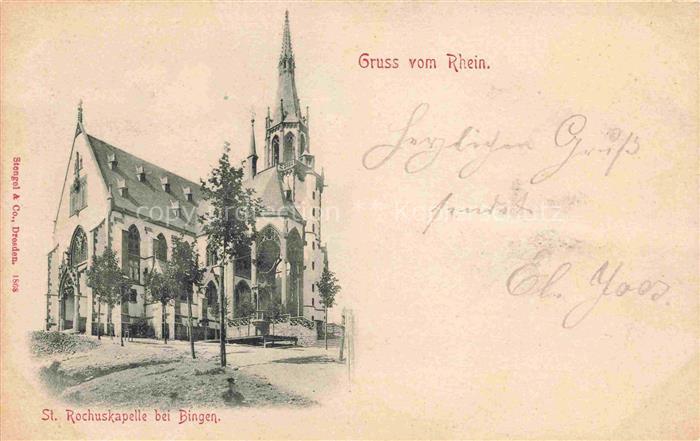 Gruss vom Rhein.
Herzlichen Gruß
sendet
El. Joos.
St. Rochuskapelle bei Bingen.
Stengel & Co., Dresden. 1868
copyright protection